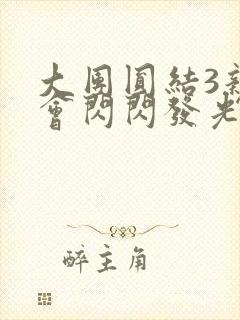 大團圓結3新
會閃閃發光
醉主角